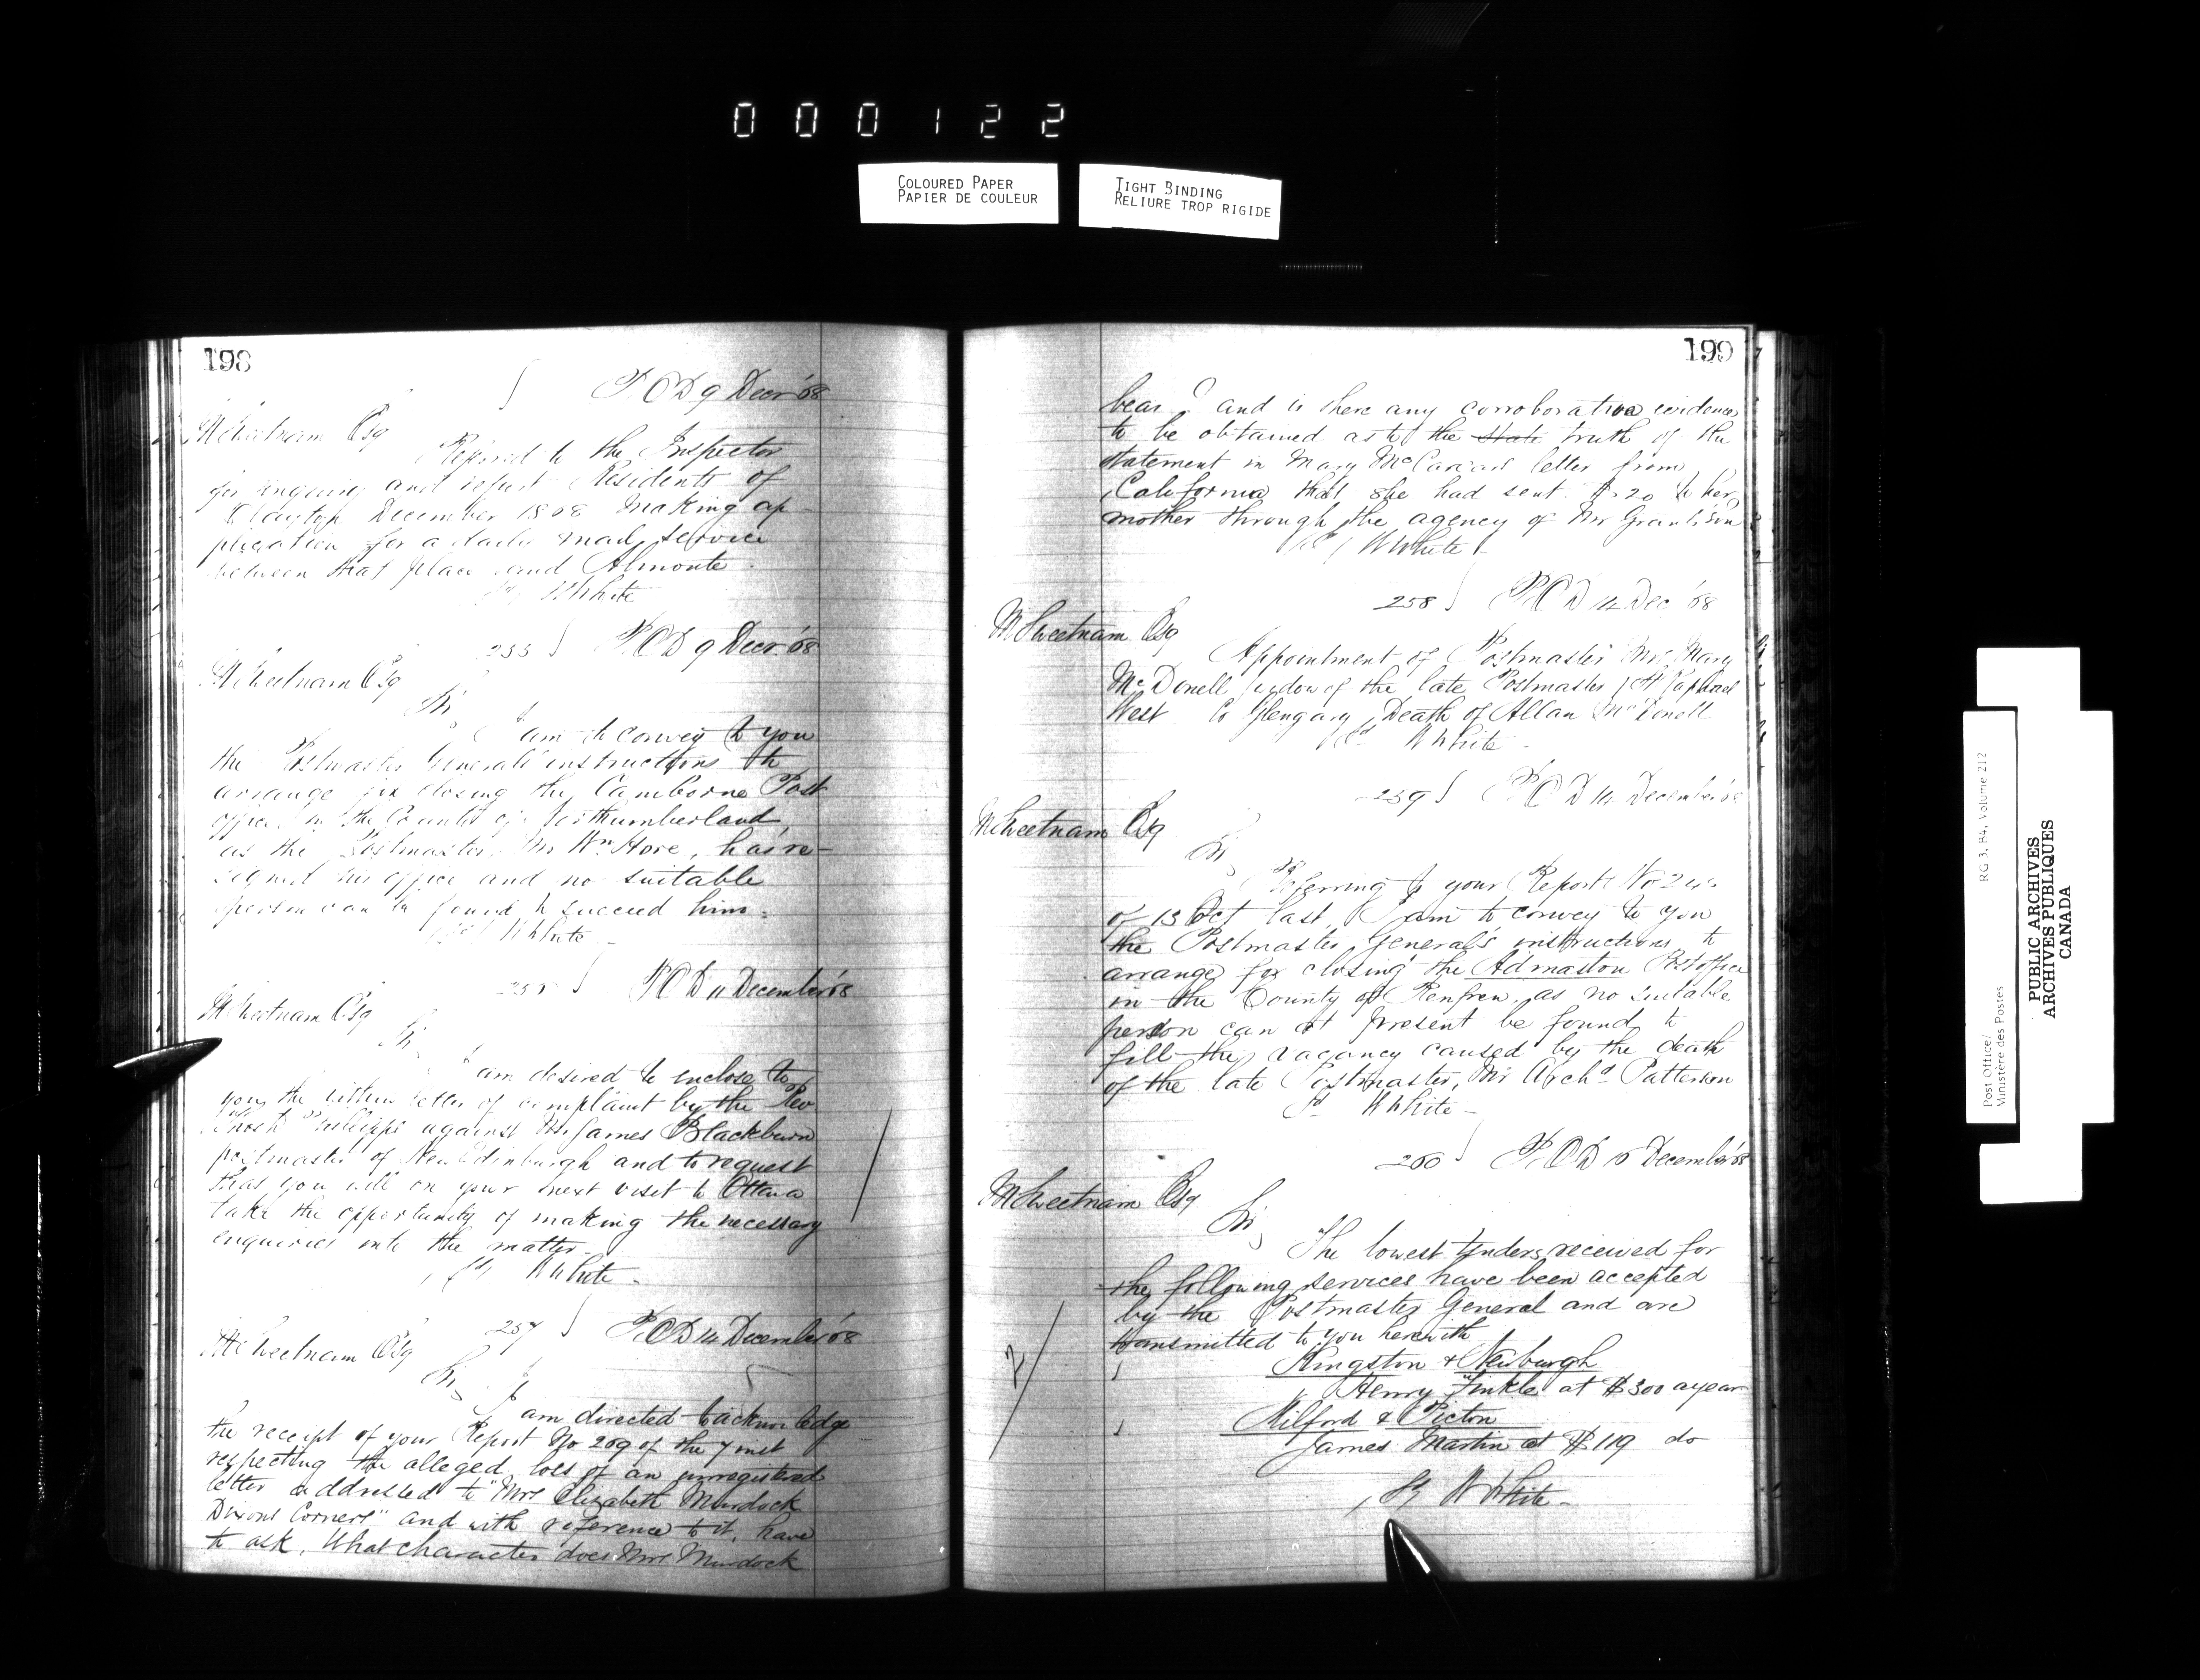 000122
COLOURED PAPER
PAPIER DE COULEUR
TIGHT BINDING
RELIURE TROP RIGIDE
198
P.O.D 9 Decr '68
M Sweetnam Esq
Referred to the Inspector
for inquiry and report Residents of
Clayton December 1868 making ap
plication for a daily mail service
between that place and Almonte
White
255 P.O.D 9 Decr. '68
M Sweetnam Esq
Sir,
I am to convey to you
the Postmaster General's instructions to
arrange for closing the Camborne Post
office in the County of Northumberland,
as the Postmaster, Mr Wm Hore, has re-
signed his office and no suitable
person can be found to succeed him.
W White
P.O.D 11 December '68
M Sweetnam Esq
Sir,
I am desired to enclose to
you the within letter of complaint by the Rev
against Mr James Blackburn
postmaster of New Edinburgh and to request
that you will on your next visit to Ottawa
take the opportunity of making the necessary
enquiries into the matter.
Sd W White
257 P.O.D 14 December '68
M Sweetnam Esq
Sir,
I am directed to acknowledge
the receipt of your Report No 209 of the 7 inst
respecting the alleged loss of an unregistered
letter addressed to "Mrs Elizabeth Murdock
Dixons Corners" and with reference to it, have
to ask, What character does Mrs Murdock
199
bear? and is there any corroborative evidence
to be obtained as to the state truth of the
statement in Mary letter from
California that she had sent $20 to her
mother through the agency of Mr
Sd W White
258 P.O.D 14 Dec '68
M Sweetnam Esq
Appointment of Postmaster Mrs Mary
McDonell widow of the late Postmaster, St Raphael
West Co Glengary, Death of Allan McDonell
Sd W White
259 P.O.D 14 December '68
M Sweetnam Esq
Sir,
Referring to your Report No
of 13 Oct last, I am to convey to you
the Postmaster General's instructions to
arrange for closing the Admaston Post office
in the County of Renfrew, as no suitable
person can at present be found to
fill the vacancy caused by the death
of the late Postmaster, Mr Archd Patterson
Sd W White
260 P.O.D 16 December '68
M Sweetnam Esq
Sir,
The lowest tenders received for
the following services have been accepted
by the Postmaster General and are
transmitted to you herewith
Kingston & Newburgh
Henry Finkle at $300 a year
Milford & Picton
James Martin at $119 do
Sd W White
2
Post Office/ RG 3, B4, Volume 212
Ministère des Postes
PUBLIC ARCHIVES
ARCHIVES PUBLIQUES
CANADA